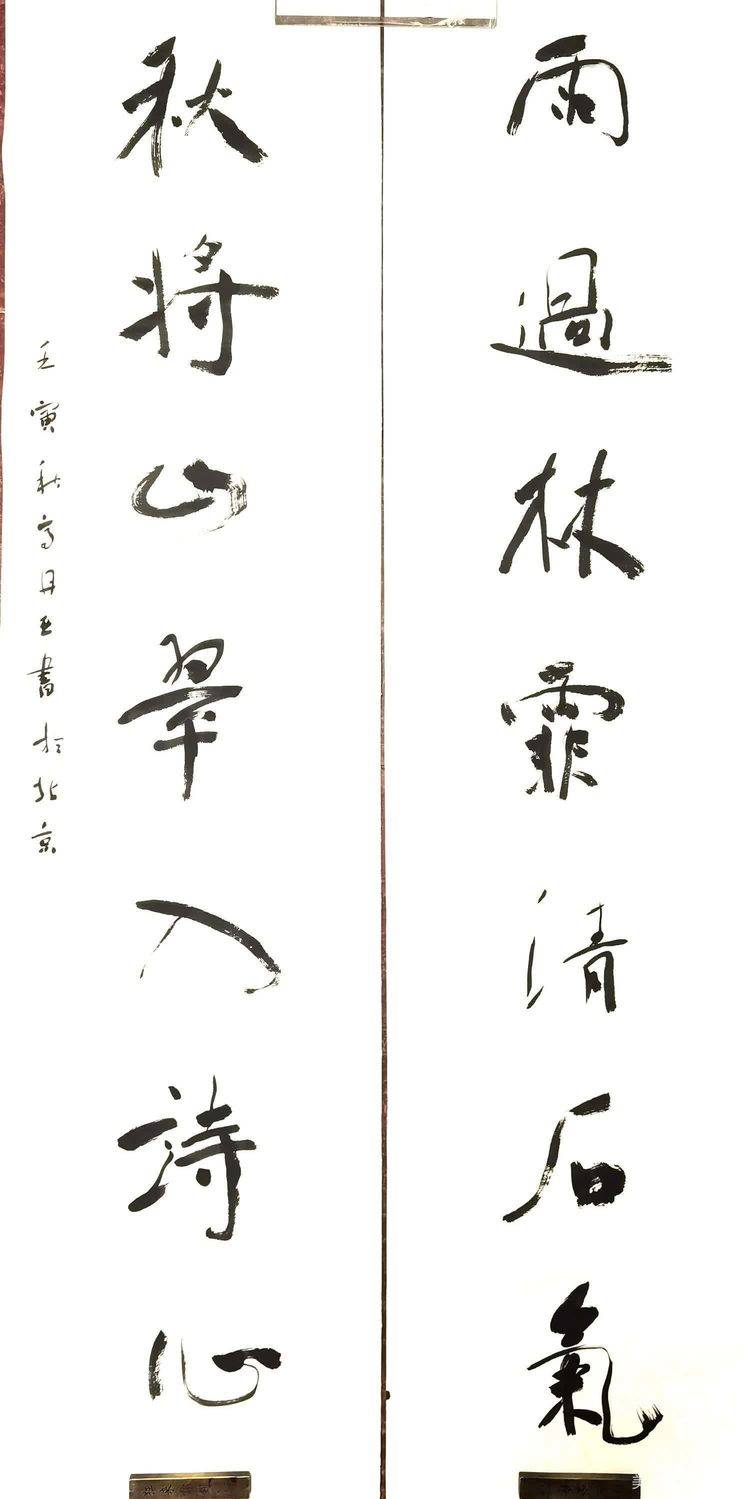 雨過林霏清石氣
秋將山翠入詩心
壬寅秋高丹五書於北京